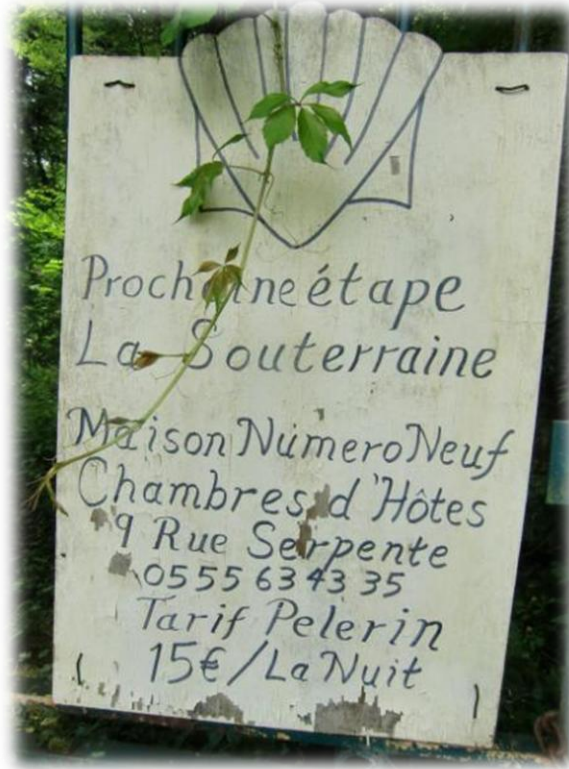 Prochaine étape
La Souterraine
Maison Numero Neuf
Chambres d'Hôtes
9 Rue Serpente
0555 63 43 35
Tarif Pelerin
15€/La Nuit